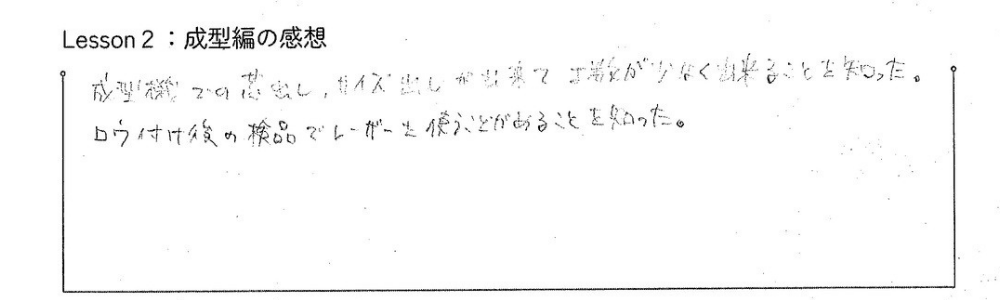 Lesson 2：成型編の感想
成型機での芯出し、サイズ出しが出来て工数が少なく出来ることを知った。
ロウ付け後の検品でレーザーを使うことがあることを知った。